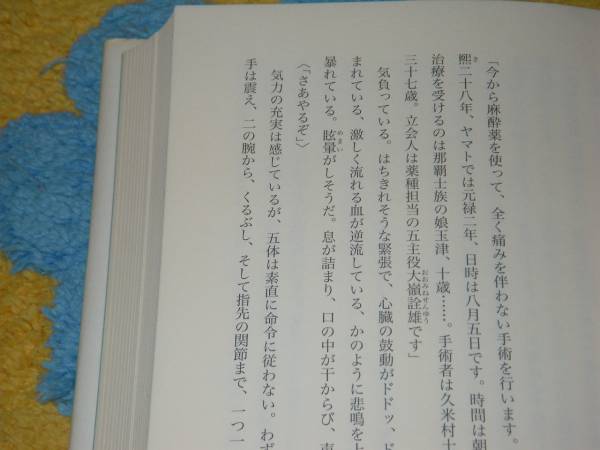 「今から麻酔薬を使って、全く痛みを伴わない手術を行います。
熙二十八年、ヤマトでは元禄二年、日時は八月五日です。時間は朝
治療を受けるのは那覇士族の娘玉津、十歳……。手術者は久米村士
三十七歳。立会人は薬種担当の五主役大嶺詮雄です」
気負っている。はちきれそうな緊張で、心臓の鼓動がドドッ、ド
まれている、激しく流れる血が逆流している、かのように悲鳴を上
暴れている。眩暈がしそうだ。息が詰まり、口の中が干からび、声
〈『さあやるぞ』〉
気力の充実は感じているが、五体は素直に命令に従わない。わず
手は震え、二の腕から、くるぶし、そして指先の関節まで、一つ一